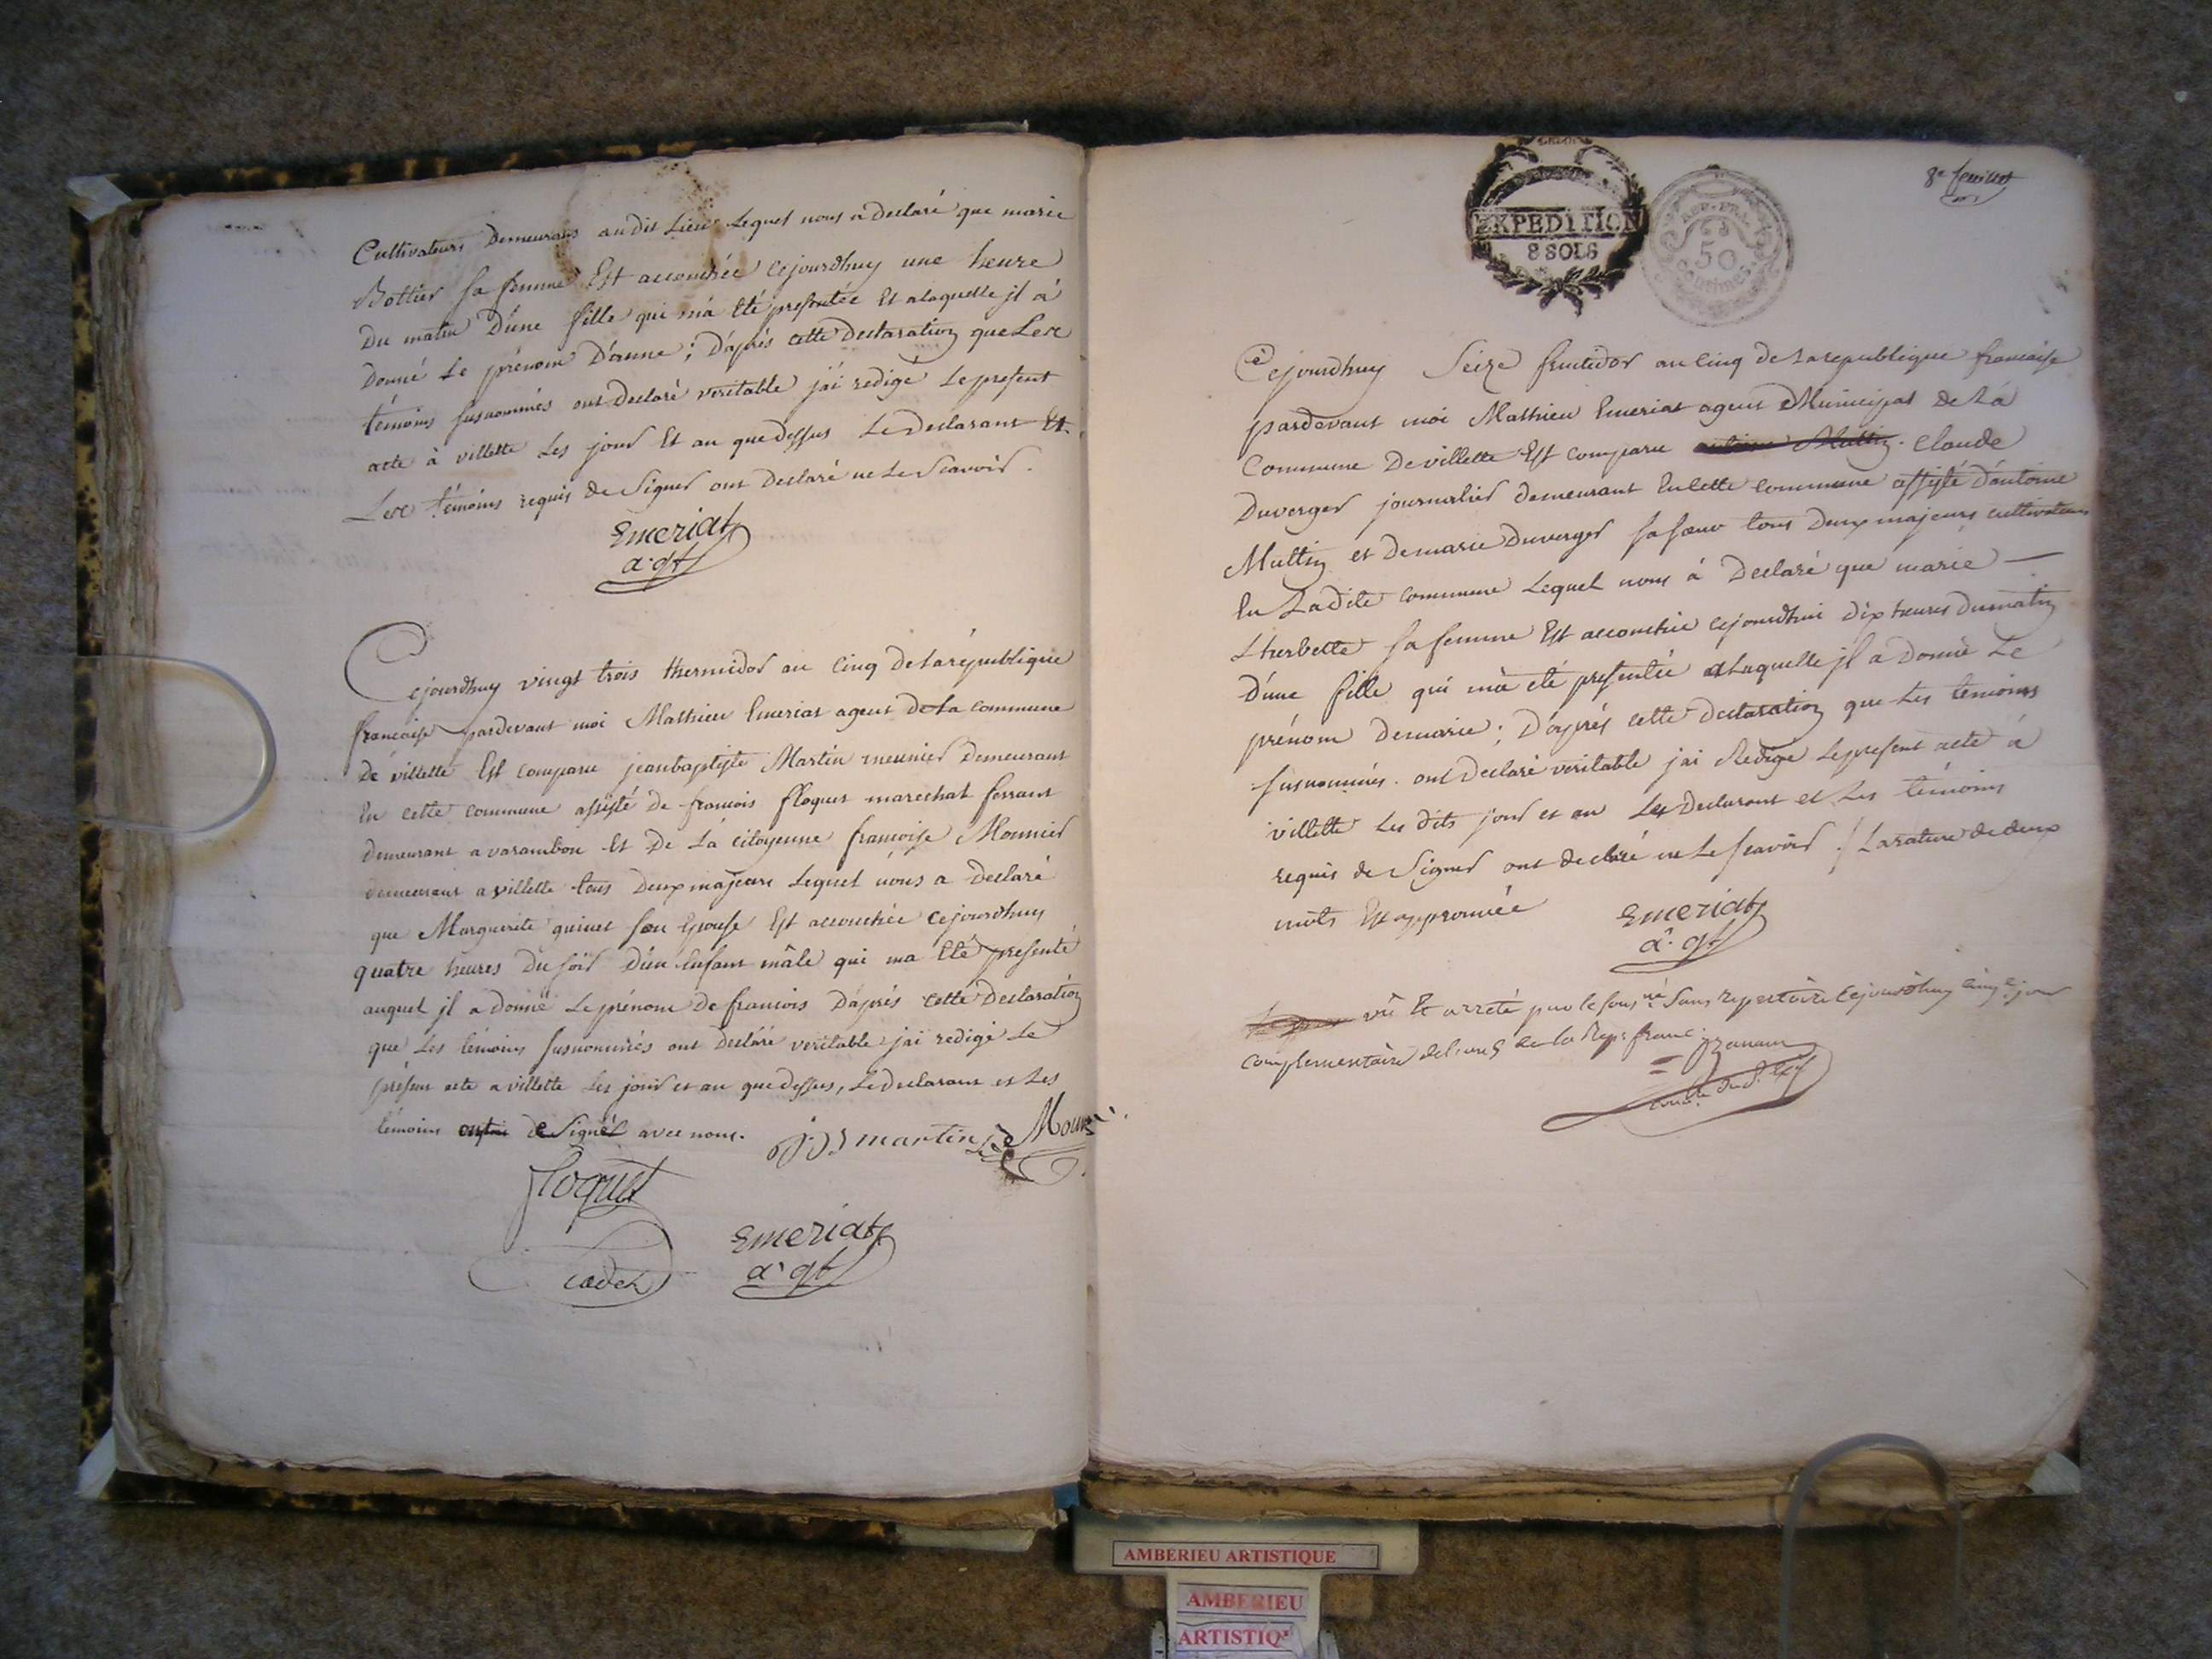 Cultivateurs Demeurants audit Lieu Lequel nous a declaré que marie
Bottier sa femme Est accouchée cejourdhuy une heure
Du matin D'une fille qui m'a Eté presentée Et alaquelle jl à
Donné Le prénom D'anne ; D'aprés cette Declaration que Les
témoins susnommés ont Declaré veritable j'ai redigé Le present
acte à villette Les jour Et an que Dessus Le Declarant Et
Les témoins requis de Signer ont Declaré ne Le Scavoir.
Emeriat
a.gt
Cejourdhuy vingt trois thermidor an Cinq De La république
francaise pardevant moi Mathieu Emeriat agent De La Commune
De villette Est comparu jeanbaptiste Martin meunier Demeurant
En cette commune assisté de francois floquet marechal ferrant
demeurant a varambon Et De La citoyenne francoise Mounier
demeurant a villette tous Deux majeurs Lequel nous a Declaré
que Marguerite quinet son Epouse Est accouchée cejourdhuy
quatre heures Du soir D'un Enfant mâle qui ma Eté presenté
auquel jl a donné Le prénom De francois D'aprés cette Declaration
que Les témoins susnommés ont Declaré veritable jai redigé Le
présent acte a villette Les jour et an que Dessus, Le Declarant et Les
témoins de Signer avec nous. j B martin
floquet
cadet
Emeriat
a.gt
8e feuillet
EXPEDITION
8 SOLS
REP. FRA.
50
Centimes
Cejourdhuy Seize fructidor an Cinq de La republique francaise
pardevant moi Mathieu Emeriat agent Municipal de La
Commune De villette Est comparu antoine Multin. Claude
Duverger journalier demeurant En cette commune assisté d'antoine
Multin et De marie Duverger sa sœur tous Deux majeurs cultivateurs
En Ladite commune Lequel nous à Declaré que marie —
Lherbette sa femme Est accouchée cejourdhui dix heures Du matin
D'une fille qui m'a été presentée a Laquelle jl a Donné Le
prénom De marie ; D'aprés cette Declaration que Les temoins
susnommés ont Declaré veritable jai Redigé Le present acte à
villette Les dits jour et an Le Declarant et Les témoins
requis de Signer ont declaré ne Le scavoir / La rature de deux
mots Est approuvée
Emeriat
a.gt
vû Et arreté par le sousné Sans repertoire Cejourdhuy cinqe jour
complementaire de l'an 5 de la Rep. franc.
AMBERIEU ARTISTIQUE
AMBERIEU
ARTISTIQ